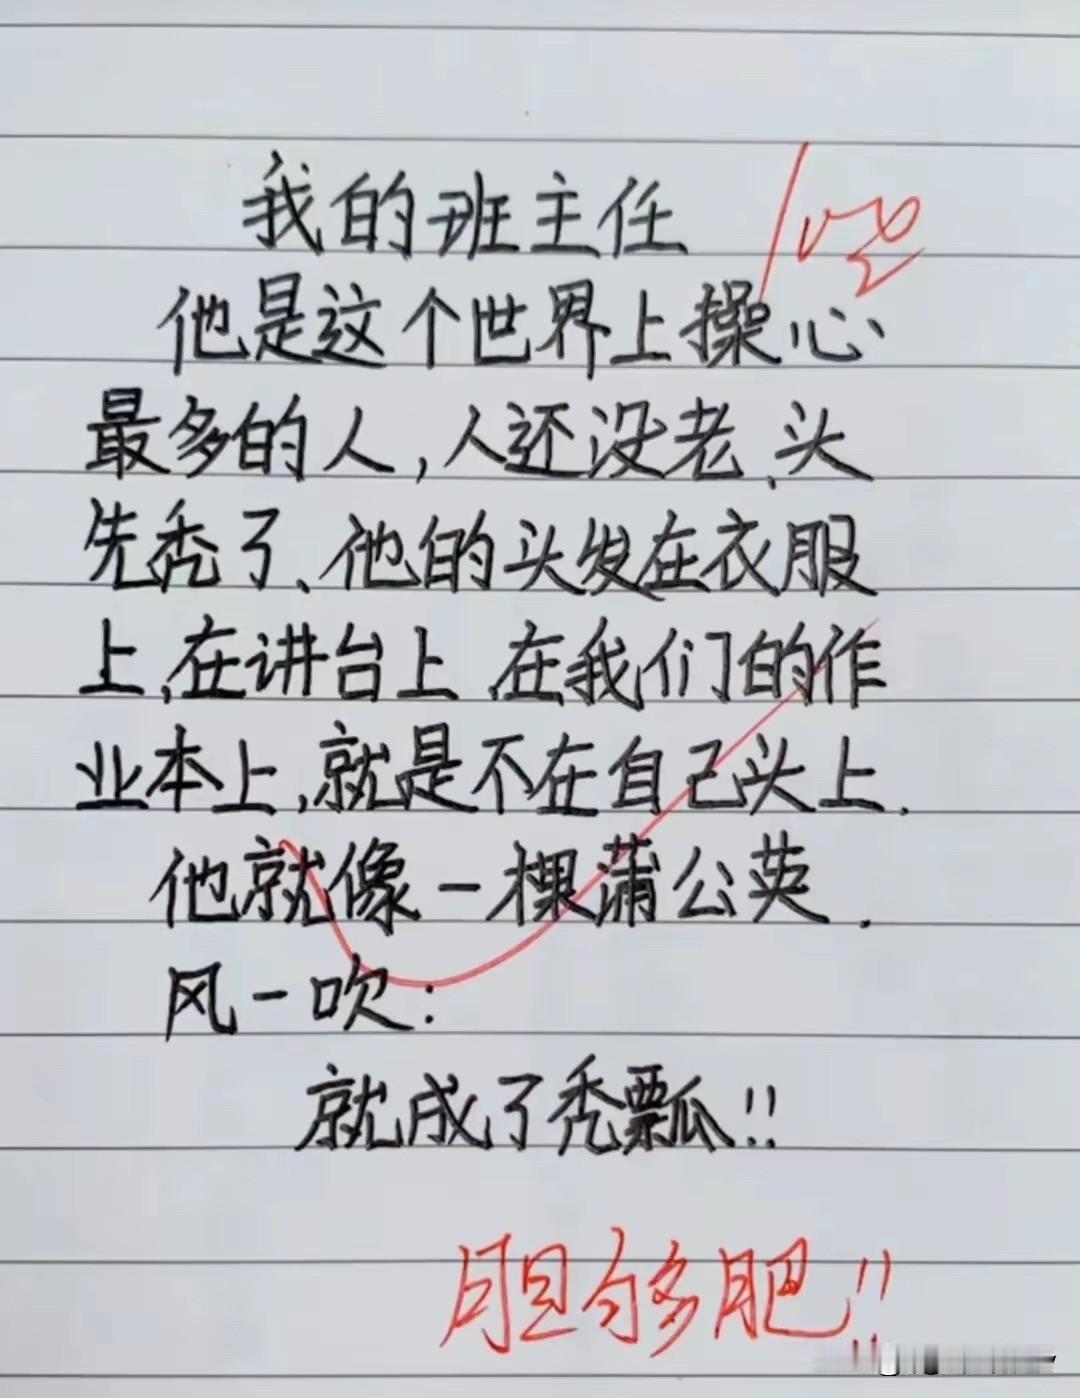 我的班主任
他是这个世界上操心
最多的人,人还没老、头
先秃了、他的头发在衣服
上,在讲台上、在我们的作
业本上,就是不在自己头上.
他就像一棵蒲公英.
风一吹:
就成了秃瓢!!
胆够肥!!